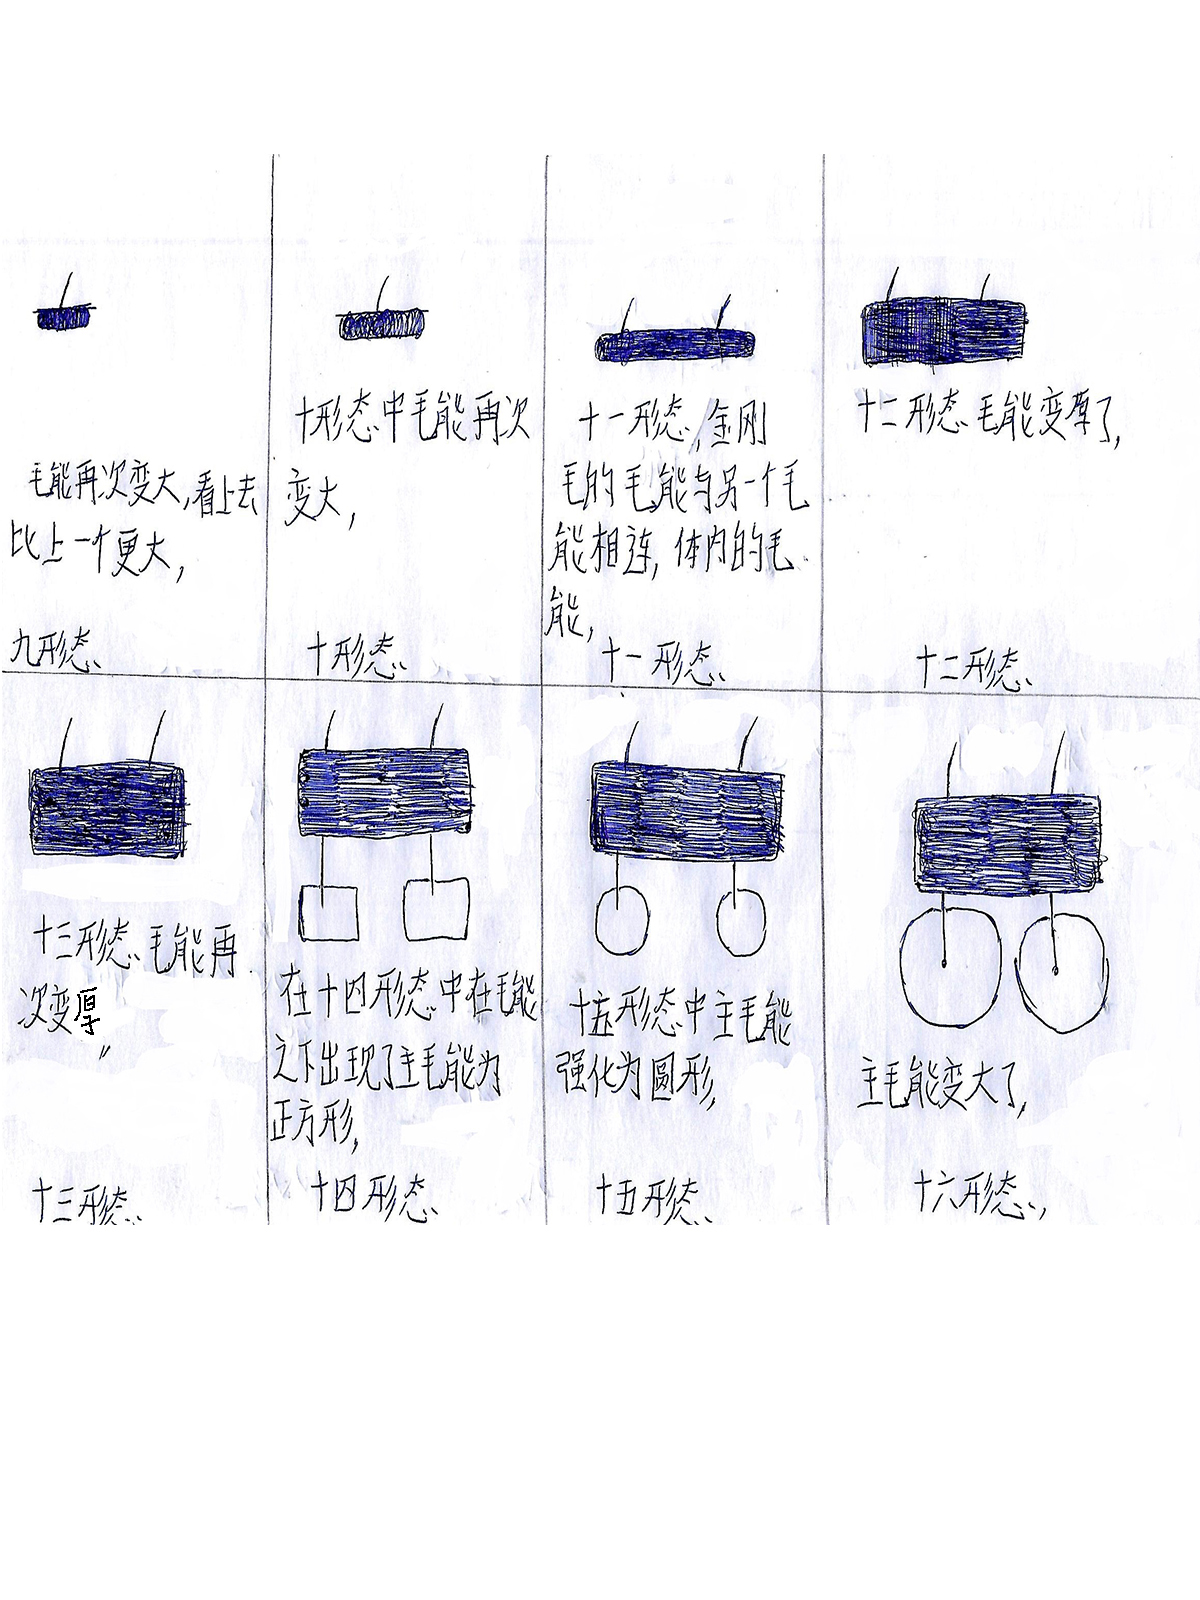 毛能再次变大,看上去
比上一个更大,
九形态、
十形态中毛能再次
变大,
十形态、
十一形态,金刚
毛的毛能与另一个毛
能相连,体内的毛
能,
十一形态、
十二形态毛能变厚了,
十二形态、
十三形态、毛能再
次变厚
十三形态、
在十四形态中在毛能
之下出现了主毛能为
正方形,
十四形态、
十五形态中主毛能
强化为圆形,
十五形态、
主毛能变大了,
十六形态、,